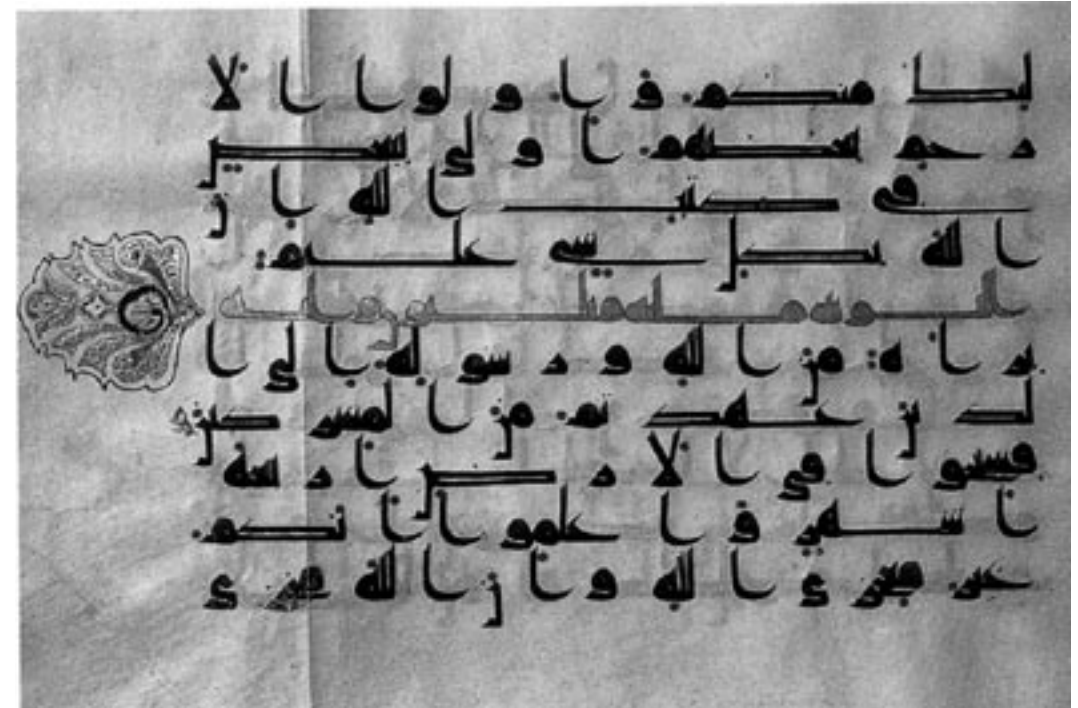 لئك منكم و اولوا الا
رحم بعضهم اولى ببعض
في كتب الله ان
الله بكل شي عليم
براة من الله و رسوله الى ا
لذين عهدتم من المشركين
فسيحوا في الارض اربعة
اشهر و اعلموا انكم
غير معجزي الله و ان الله مخزي